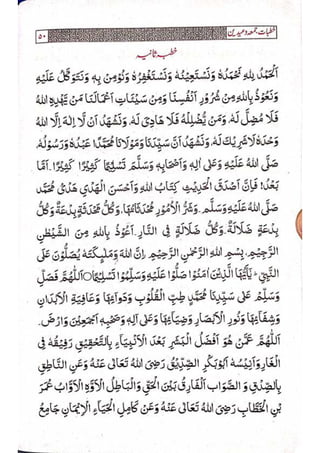 خطبات جمعہ و عیدین
۵۰
خطبہ ثانیہ
اَلْحَمْدُ لِلّٰهِ نَحْمَدُهٗ وَنَسْتَعِيْنُهٗ وَنَسْتَغْفِرُهٗ وَنُؤْمِنُ بِهٖ وَنَتَوَكَّلُ عَلَيْهِ
وَنَعُوْذُ بِاللهِ مِنْ شُرُوْرِ اَنْفُسِنَا وَمِنْ سَيِّئَاتِ اَعْمَالِنَا مَنْ يَّهْدِهِ اللهُ
فَلَا مُضِلَّ لَهٗ وَمَنْ يُّضْلِلْهُ فَلَا هَادِيَ لَهٗ، وَنَشْهَدُ اَنْ لَّا اِلٰهَ اِلَّا اللهُ
وَحْدَهٗ لَا شَرِيْكَ لَهٗ، وَنَشْهَدُ اَنَّ سَيِّدَنَا وَمَوْلَانَا مُحَمَّدًا عَبْدُهٗ وَرَسُوْلُهٗ،
صَلَّى اللهُ عَلَيْهِ وَعَلٰى اٰلِهٖ وَاَصْحَابِهٖ وَسَلَّمَ تَسْلِيْمًا كَثِيْرًا كَثِيْرًا. اَمَّا
بَعْدُ! فَاِنَّ اَصْدَقَ الْحَدِيْثِ كِتَابُ اللهِ وَاَحْسَنَ الْهَدْيِ هَدْيُ مُحَمَّدٍ
صَلَّى اللهُ عَلَيْهِ وَسَلَّمَ، وَشَرُّ الْاُمُوْرِ مُحْدَثَاتُهَا، وَكُلُّ مُحْدَثَةٍ بِدْعَةٌ وَكُلُّ
بِدْعَةٍ ضَلَالَةٌ، وَكُلُّ ضَلَالَةٍ فِي النَّارِ. اَعُوْذُ بِاللهِ مِنَ الشَّيْطٰنِ
الرَّجِيْمِ، بِسْمِ اللهِ الرَّحْمٰنِ الرَّحِيْمِ. اِنَّ اللهَ وَمَلٰٓئِكَتَهٗ يُصَلُّوْنَ عَلَى
النَّبِيِّ يٰٓاَيُّهَا الَّذِيْنَ اٰمَنُوْا صَلُّوْا عَلَيْهِ وَسَلِّمُوْا تَسْلِيْمًا○ اَللّٰهُمَّ فَصَلِّ
وَسَلِّمْ عَلٰى سَيِّدِنَا مُحَمَّدٍ طِبِّ الْقُلُوْبِ وَدَوَآئِهَا وَعَافِيَةِ الْاَبْدَانِ
وَشِفَآئِهَا وَنُوْرِ الْاَبْصَارِ وَضِيَآئِهَا وَعَلٰى اٰلِهٖ وَصَحْبِهٖ اَجْمَعِيْنَ وَارْضَ.
اَللّٰهُمَّ عَمَّنْ هُوَ اَفْضَلُ الْبَشَرِ بَعْدَ الْاَنْبِيَآءِ بِالتَّحْقِيْقِ رَفِيْقُهٗ فِي
الْغَارِ وَاَنِيْسُهٗ اَبُوْبَكْرِ الصِّدِّيْقُ رَضِيَ اللهُ تَعَالٰى عَنْهُ وَعَنِ النَّاطِقِ
بِالصِّدْقِ وَ الصَّوَابِ الْفَارِقِ بَيْنَ الْحَقِّ وَالْبَاطِلِ الْاَوَّاهِ الْاَوَّابِ عُمَرَ
بْنِ الْخَطَّابِ رَضِيَ اللهُ تَعَالٰى عَنْهُ وَعَنْ كَامِلِ الْحَيَآءِ الْاِيْمَانِ جَامِعِ